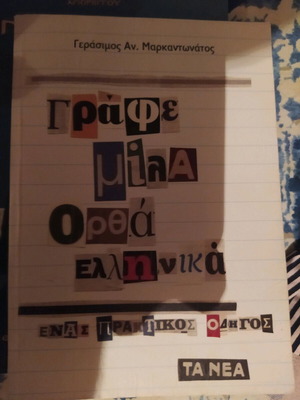 Γεράσιμος Αν. Μαρκαντωνάτος
Γράφε
μίλα
Ορθά
ελληνικά
ΕΝΑΣ ΠΡΑΚΤΙΚΟΣ ΟΔΗΓΟΣ
ΤΑ ΝΕΑ